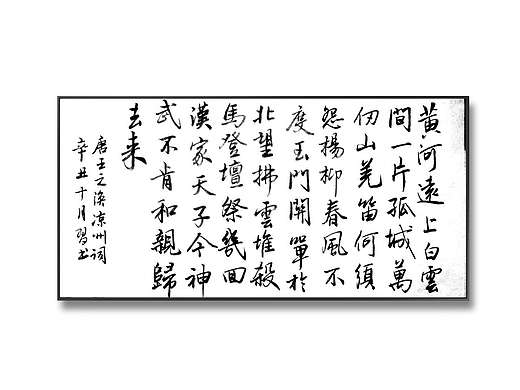 黄河遠上白雲
間一片孤城萬
仞山羌笛何須
怨楊柳春風不
度玉門開單於
北望拂雲堆殺
馬登壇祭幾回
漢家天子今神
武不肯和親歸
去来
唐王之渙凉州詞
辛丑十月習书